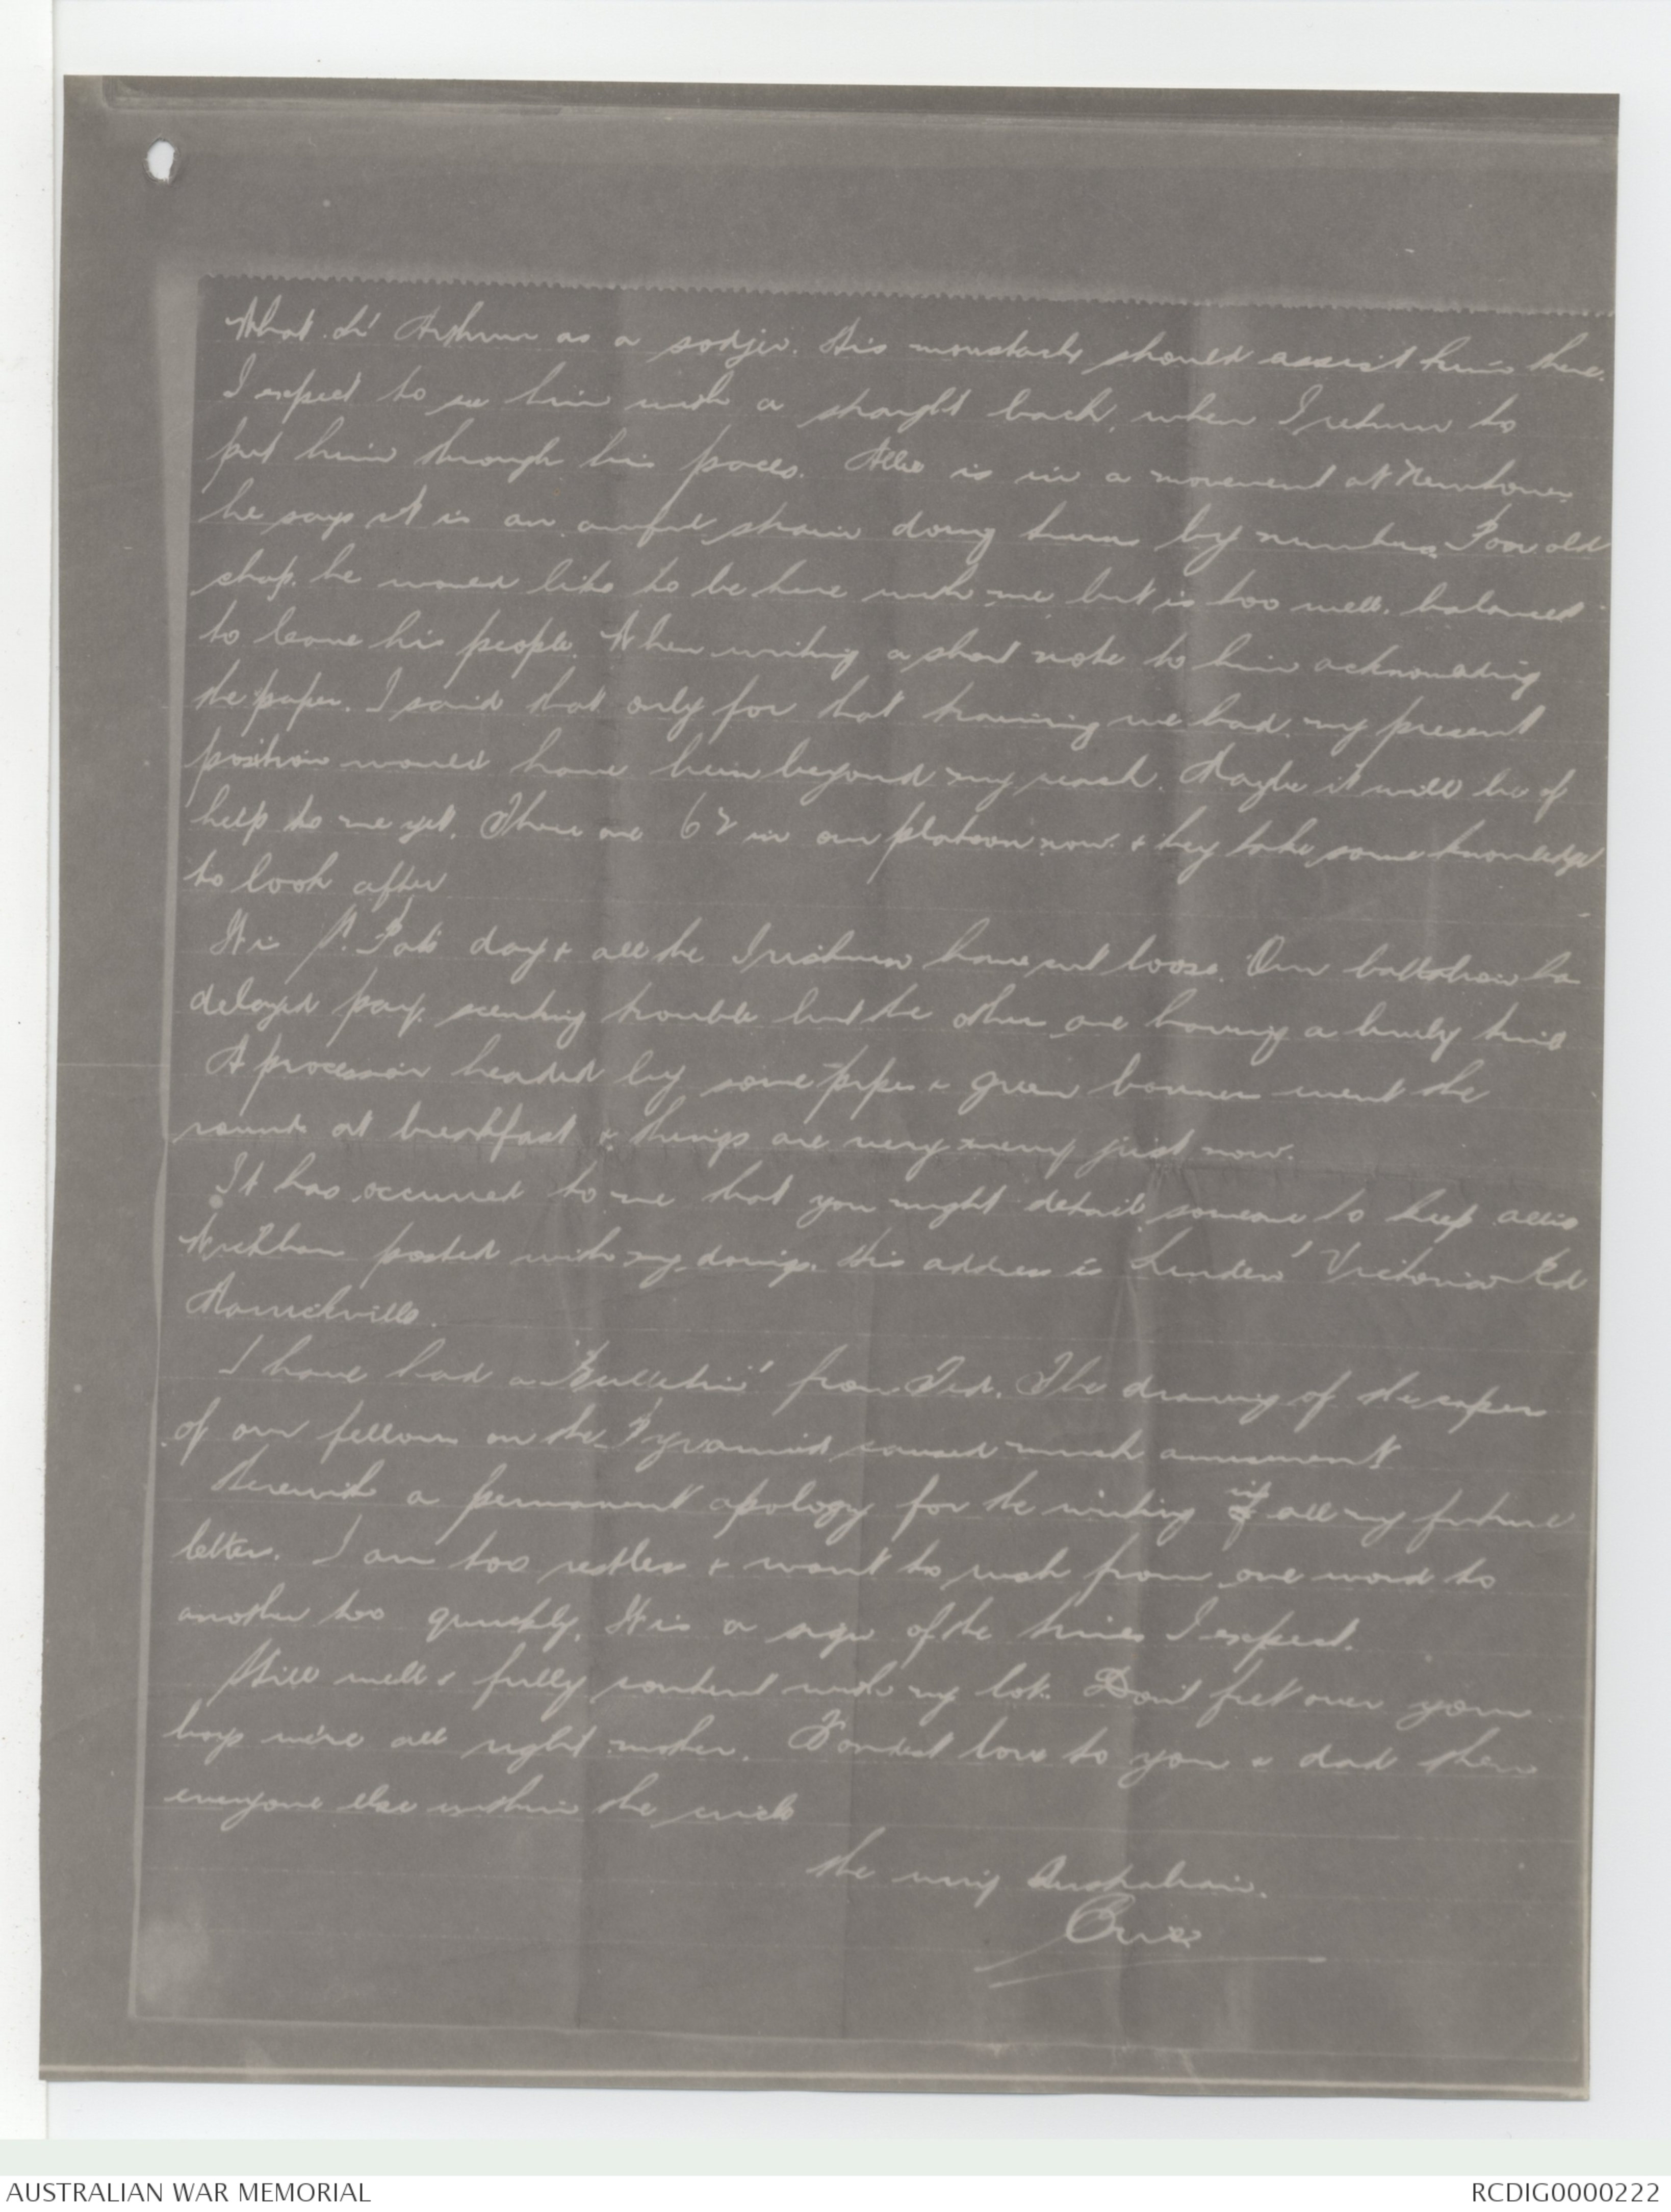 What oh! Arthur as a sodjer. His moustache should assist him there.
I expect to see him with a straight back, when I return to
put him through his paces. Allie is in a movement at
he says it is an awful strain doing turns by numbers. Poor old
chap. he would like to be here with me but is too well balanced
to leave his people. When writing a short note to him acknowledging
the paper. I said that only for that training we had my present
position would have been beyond my reach. Maybe it will be of
help to me yet. There are 62 in our platoon now & they take some knowledge
to look after
It is St. Pat's day & all the Irishmen have cut loose. Our battalion ha
delayed pay. scenting trouble but the others are having a lively time
A procession headed by some pipes & green banner went the
rounds at breakfast & things are very merry just now.
It has occurred to me that you might detail someone to keep Allie
posted with my doings. His address is 'Linden' Victoria Rd
Marrickville.
I have had a 'Bulletin' from Ted. The drawing of the capers
of our fellows on the Pyramid caused much amusement
Herewith a permanent apology for the writing if all my future
letters. I am too restless & want to rush from one word to
another too quickly. It is a sign of the times I expect.
Still well & fully content with my lot. Don't fret over your
boys we're all right mother. Fondest love to you & dad then
everyone else within the circle
The Australian.
AUSTRALIAN WAR MEMORIAL
RCDIG0000222